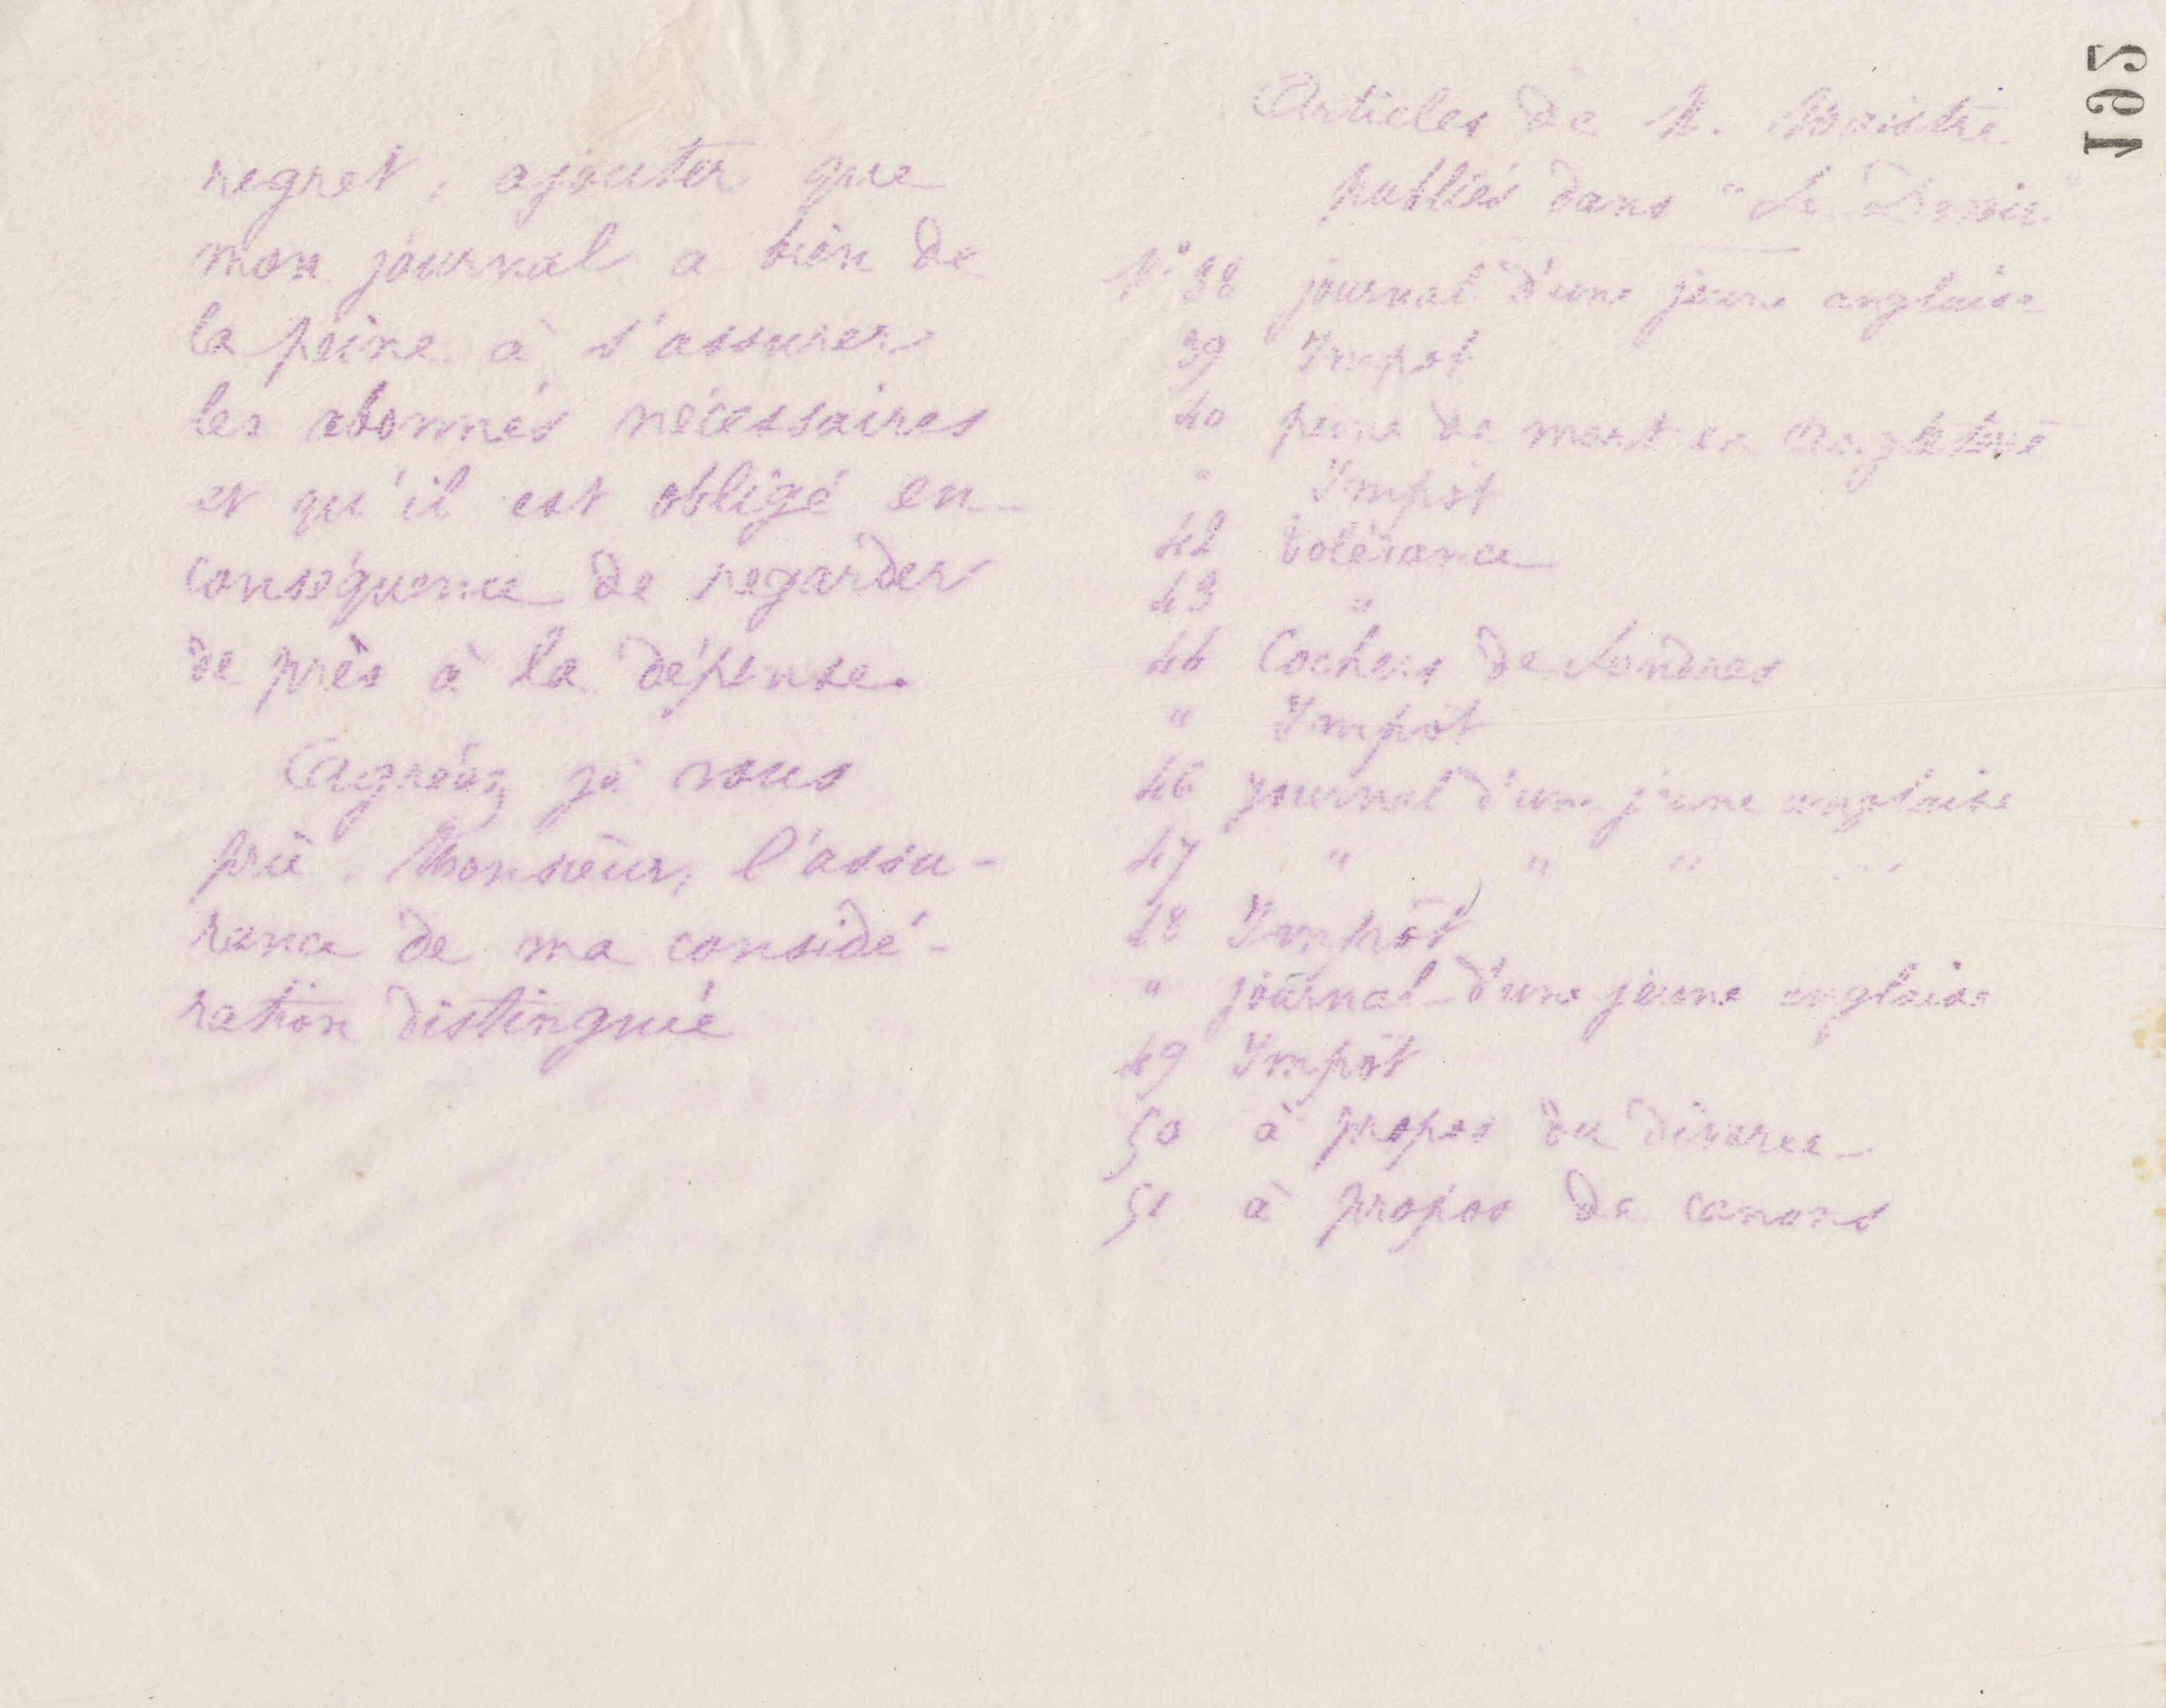 regret, ajouter que
mon journal a bien de
la peine à s'assurer
les abonnés nécessaires
et qu'il est obligé en
conséquence de regarder
de près à la dépense.
Agréez, je vous
prie, Monsieur, l'assu-
rance de ma considé-
ration distinguée
Articles de M. Maistre
publiés dans "Le Devoir"
N° 38 journal d'une jeune anglaise
39 Impôt
40 peine de mort en Angleterre
" Impôt
42 tolérance
43 "
44 Cochers de Londres
" Impôt
46 journal d'une jeune anglaise
47 " " " "
48 Impôt
" journal d'une jeune anglaise
49 Impôt
50 à propos du divorce
51 à propos de canons
195